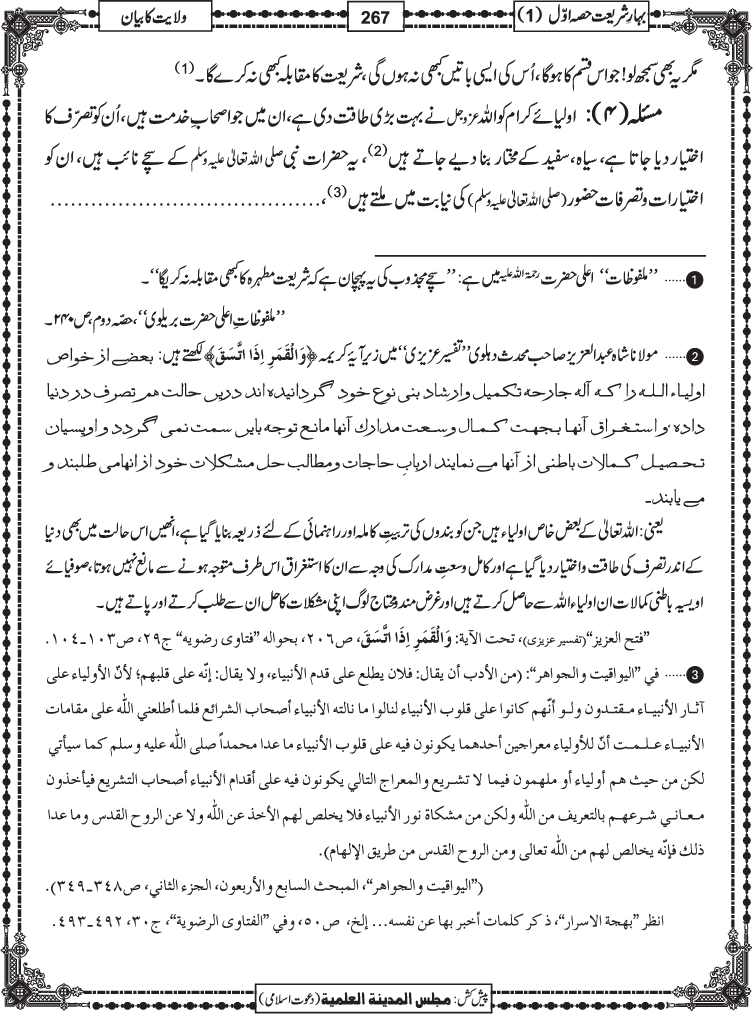 بہارِ شریعت حصہ اوّل (1)
267
ولایت کا بیان
مگر یہ بھی سمجھ لو! جو اس قسم کا ہوگا، اُس کی ایسی باتیں کبھی نہ ہوں گی، شریعت کا مقابلہ کبھی نہ کرے گا۔ (1)
مسئلہ (۴): اولیائے کرام کو اللہ عزوجل نے بہت بڑی طاقت دی ہے، ان میں جو اصحابِ خدمت ہیں، اُن کو تصرّف کا
اختیار دیا جاتا ہے، سیاہ، سفید کے مختار بنا دیے جاتے ہیں (2)، یہ حضرات نبی صلی اللہ تعالیٰ علیہ وسلم کے سچے نائب ہیں، ان کو
اختیارات و تصرفات حضور (صلی اللہ تعالیٰ علیہ وسلم) کی نیابت میں ملتے ہیں (3)، ......................................
1 ...... ’’ملفوظات‘‘ اعلی حضرت رحمۃ اللہ علیہ میں ہے: ’’سچے مجذوب کی یہ پہچان ہے کہ شریعت مطہرہ کا کبھی مقابلہ نہ کریگا‘‘۔
’’ملفوظاتِ اعلی حضرت بریلوی‘‘، حصّہ دوم، ص۲۴۰۔
2 ...... مولانا شاہ عبد العزیز صاحب محدث دہلوی ’’تفسیر عزیزی‘‘ میں زیرِ آیۂ کریمہ ﴿وَالْقَمَرِ اِذَا اتَّسَقَ﴾ لکھتے ہیں: بعضے از خواص
اولیاء اللہ را کہ آلہ جارحہ تکمیل وارشاد بنی نوع خود گردانیدہ اند دریں حالت ہم تصرف در دنیا
دادہ و استغراق آنہا بجھت کمال وسعت مدارک آنہا مانع توجہ بایں سمت نمی گردد و اویسیان
تحصیل کمالات باطنی از آنہا مے نمایند اربابِ حاجات ومطالب حل مشکلات خود از انہامی طلبند و
مے یابند۔
یعنی: اللہ تعالیٰ کے بعض خاص اولیاء ہیں جن کو بندوں کی تربیتِ کاملہ اور راہنمائی کے لئے ذریعہ بنایا گیا ہے، انھیں اس حالت میں بھی دنیا
کے اندر تصرف کی طاقت واختیار دیا گیا ہے اور کامل وسعتِ مدارک کی وجہ سے ان کا استغراق اس طرف متوجہ ہونے سے مانع نہیں ہوتا، صوفیائے
اویسیہ باطنی کمالات ان اولیاء اللہ سے حاصل کرتے ہیں اور غرض مند و محتاج لوگ اپنی مشکلات کا حل ان سے طلب کرتے اور پاتے ہیں۔
”فتح العزیز“ (تفسیر عزیزی)، تحت الآية: وَالْقَمَرِ اِذَا اتَّسَقَ، ص۲۰۶، بحوالہ ”فتاوی رضویہ“ ج۲۹، ص۱۰۳۔۱۰۴.
3 ...... في ”اليواقيت والجواهر“: (من الأدب أن يقال: فلان يطلع على قدم الأنبياء، ولا يقال: إنّه على قلبهم؛ لأنّ الأولياء على
آثار الأنبياء مقتدون ولو أنّهم كانوا على قلوب الأنبياء لنالوا ما نالته الأنبياء أصحاب الشرائع فلما أطلعني الله على مقامات
الأنبياء علمت أنّ للأولياء معراجين أحدهما يكونون فيه على قلوب الأنبياء ما عدا محمداً صلى الله عليه وسلم كما سيأتي
لكن من حيث هم أولياء أو ملهمون فيما لا تشريع والمعراج التالي يكونون فيه على أقدام الأنبياء أصحاب التشريع فيأخذون
معاني شرعهم بالتعريف من الله ولكن من مشكاة نور الأنبياء فلا يخلص لهم الأخذ عن الله ولا عن الروح القدس وما عدا
ذلك فإنّه يخالص لهم من الله تعالى ومن الروح القدس من طريق الإلهام).
(”اليواقيت والجواهر“، المبحث السابع والأربعون، الجزء الثاني، ص۳٤۸۔۳٤۹).
انظر ”بهجة الاسرار“، ذكر كلمات أخبر بها عن نفسه... إلخ، ص۵۰، وفي ”الفتاوى الرضوية“، ج۳۰، ٤۹۲۔٤۹۳.
پیش کش: مجلس المدینة العلمیة (دعوت اسلامی)